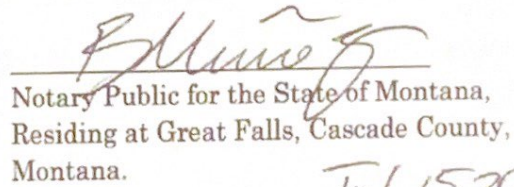 B Muñoz
Notary Public for the State of Montana,
Residing at Great Falls, Cascade County,
Montana.